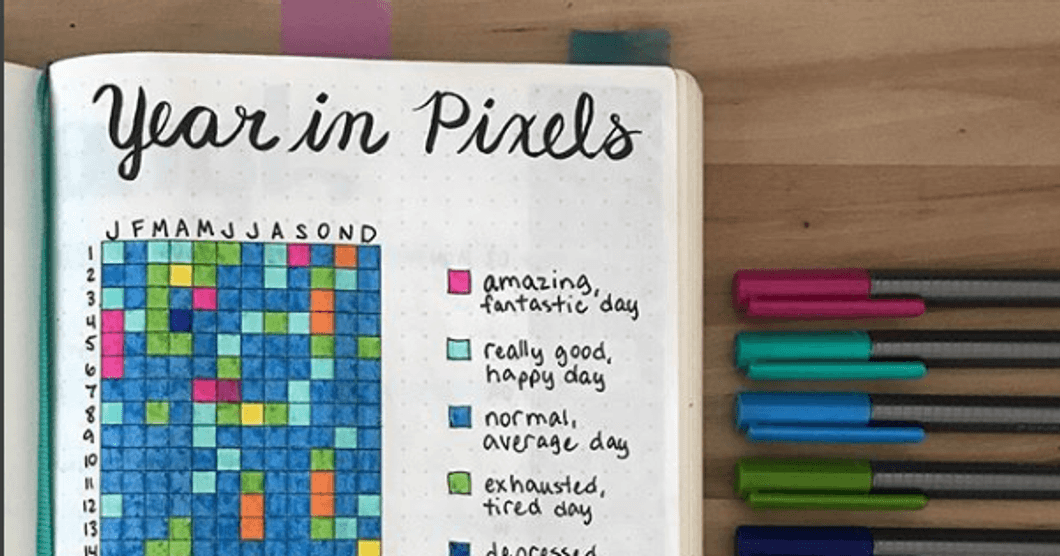 Year in Pixels
J F M A M J J A S O N D
1
2
3
4
5
6
7
8
9
10
11
12
13
14
amazing,
fantastic day
really good,
happy day
normal,
average day
exhausted,
tired day
depressed,